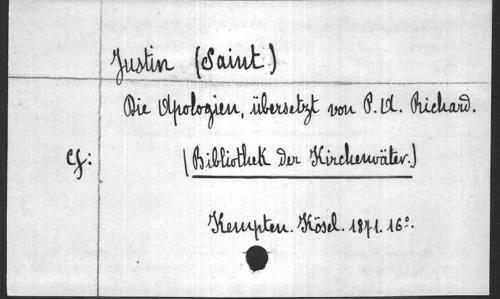 Justin (Saint.)
Die Apologien, übersetzt von P. A. Richard.
Cf: (Bibliothek der Kirchenväter.)
Kempten. Kösel. 1871. 16º.